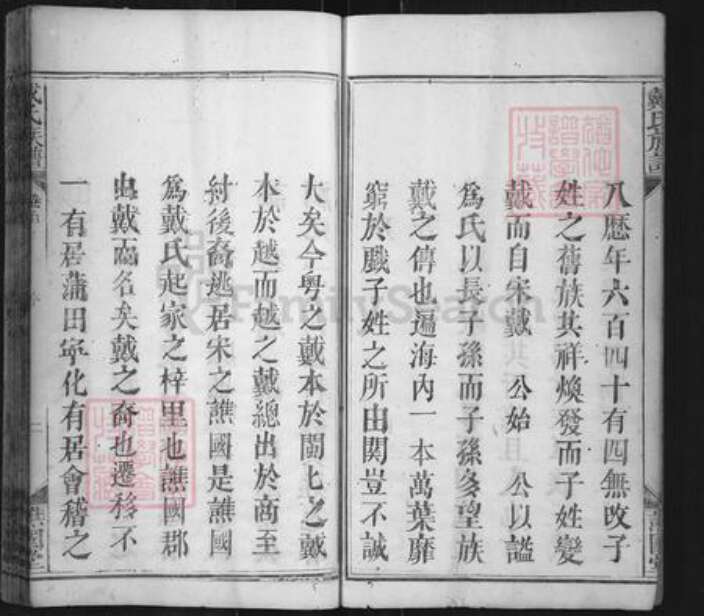 戴氏族譜
八歷年六百四十有四無改子
姓之舊族其祥煥發而子姓變
戴而自宋戴 公始 公以諡
為氏以長子孫而子孫多望族
戴之傳也遍海內一本萬葉靡
窮於戲子姓之所由関豈不誠
大矣今粵之戴本於閩七之戴
本於越而越之戴總出於商至
紂後裔逃居宋之譙國是譙國
為戴氏起家之梓里也譙國郡
由戴而名矣戴之裔也遷移不
一有居蒲田寧化有居會稽之
戴氏族譜
FamilySearch